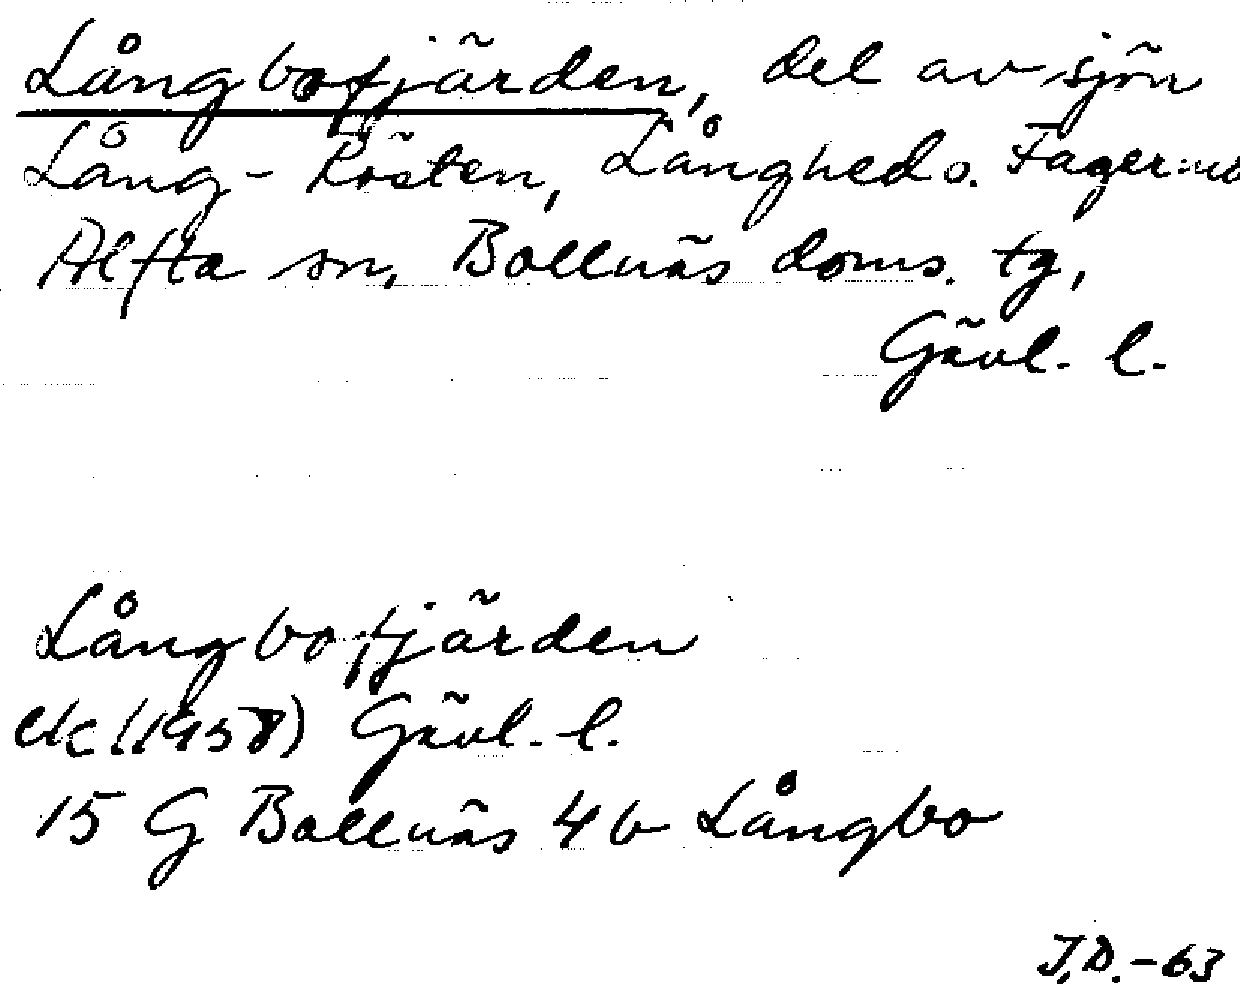 Långbofjärden, del av sjön
Lång-Rösten, Långheds.
Alfta sn, Bollnäs doms. tg,
Gävl. l.
Långbofjärden
ek (1958) Gävl. l.
15 G Bollnäs 4b Långbo
J.D. -63